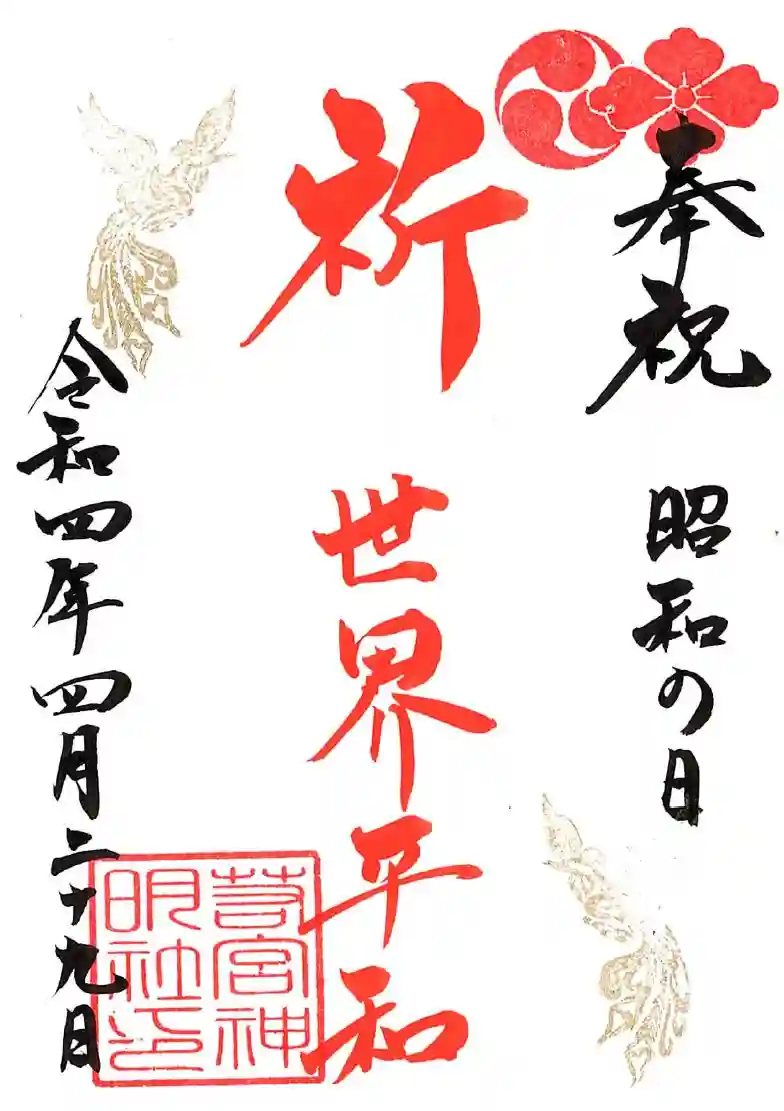 奉祝 昭和の日
祈 世界平和
令和四年四月二十九日
若宮神
明社印